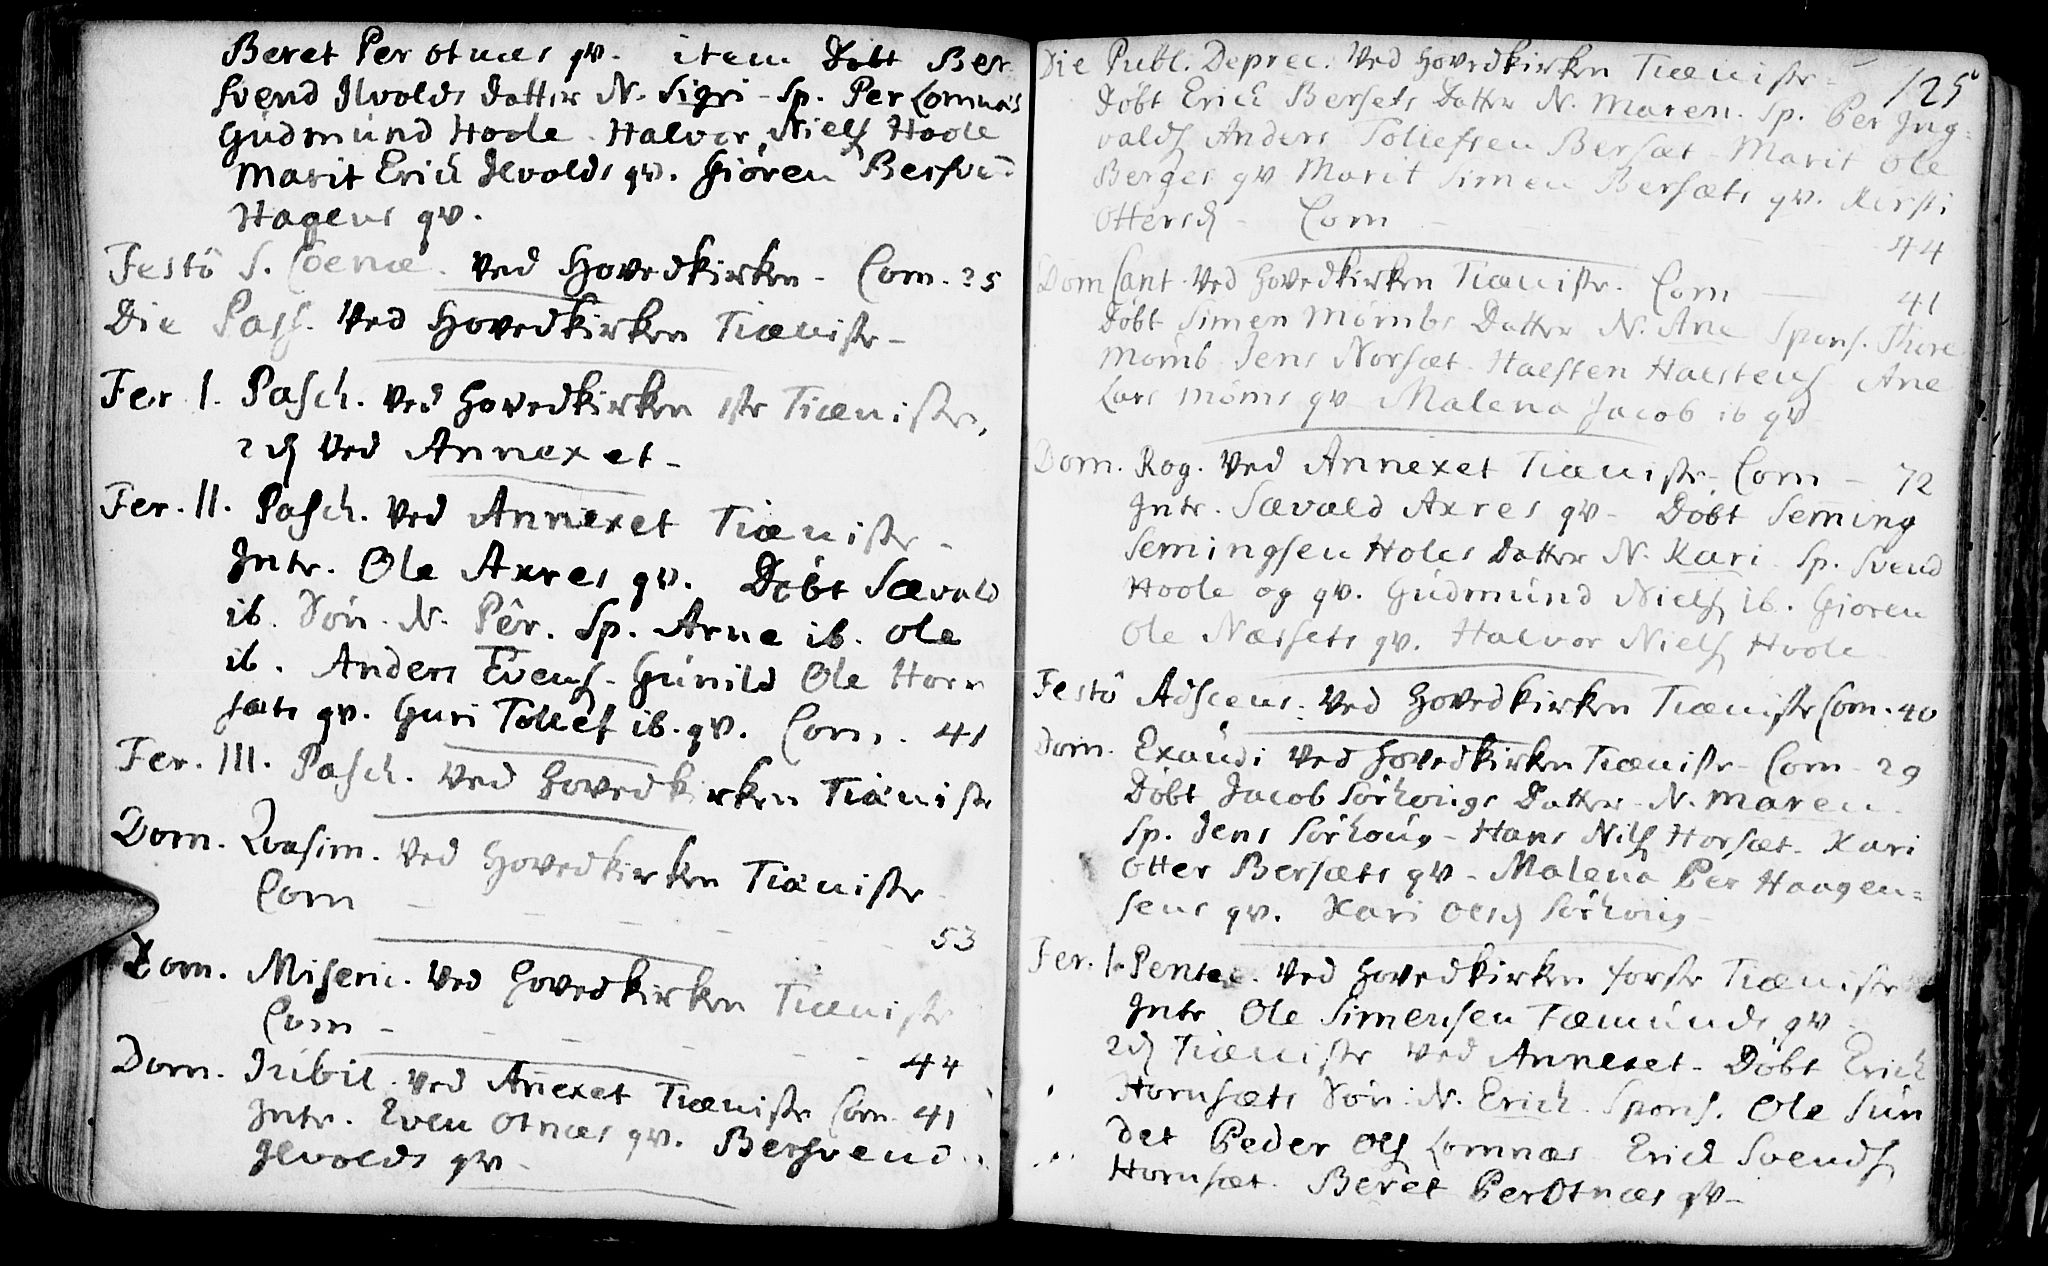 Beret Per Otnæs qv. item Døbt Ber
svend Ilvolds datter N. Sigri - Sp. Per Lomnæs
Gudmund Hoole. Halvor Niels Hoole
Marit Erich Ilvolds qv. Giøren Bersven
Hagens qv.
Festo S. Coenæ. Ved Hovedkirken - Com. 25
Die Pass. Ved Hovedkirken Tiæniste -
Fer. I. Pasch. Ved Hovedkirken 1ste Tiæniste,
2d Ved Annexet -
Fer. II. Pasch. Ved Annexet Tiæniste -
Intr. Ole Axres qv. Døbt Sævald
ib. Søn. N. Pêr. Sp. Arne ib. Ole
ib. Anders Evens. Gunild Ole Horn
sæts qv. Guri Tollef ib. qv. Com. 41
Fer. III. Pasch. Ved Hovedkirken Tiæniste
Dom. Qvasim. Ved Hovedkirken Tiæniste -
Com - - - - 53
Dom. Miseric. Ved Hovedkirken Tiæniste
Com - - - - 44
Dom. Jubil. Ved Anexet Tiæniste Com. 41
Intr. Even Otnæs qv. Bersvend
Ilvolds qv -
125
Die Publ. Deprec. Ved Hovedkirken Tiæniste -
Døbt Erich Bersets Datter N. Maren. Sp. Per Ing-
valds Anders Tollefsen Bersæt - Marit Ole
Berges qv Marit Simen Bersæts qv. Kirsti
Ottersd - Com - 44
Dom Cant. Ved Hovedkirken Tiæniste. Com - 41
Døbt Simen Mømbs Datter N. Ane Spons. Thore
Mømb Jens Norsæt. Halsten Halstens Ane
Lars Møms qv Malena Jacob ib qv
Dom. Rog. Ved Annexet Tiæniste. Com - 72
Intr. Sævald Axres qv - Døbt Seming
Semingsen Holes Datter N. Kari. Sp. Svend
Hoole og qv. Gudmund Niels ib. Gioren
Ole Næssets qv. Halvor Niels Hoole -
Festo Adscens: Ved Hovedkirken Tiæniste Com. 40
Dom. Exaudi Ved Hovedkirken Tiæniste - Com - 29
Døbt Jacob Sørhougs Datter - N. Maren
Sp. Jens Sørhoug - Hans Nils Horsæt. Kari
Otter Bersæts qv - Malena Per Haagen-
sens qv. Kari Olsd Sørhoug -
Fer. I. Pentec. Ved Hovedkirken første Tiæniste
Intr Ole Simensen Fæmunds qv -
2d Tiæniste Ved Annexet - Døbt Erich
Hornsæts Søn: N. Erich. Spons. Ole Sun
det Peder Ols Lomnæs Erich Svends
Hornsæt. Beret Per Otnæs qv -